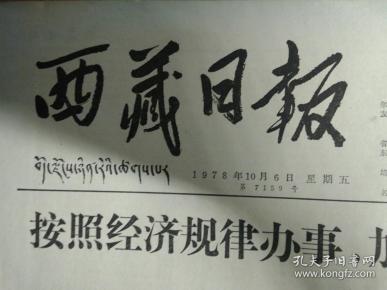 西藏日报
བོད་ལྗོངས་ཉིན་རེའི་ཚགས་པར
1978年10月6日 星期五
第7159号
按照经济规律办事 加
孔夫子旧书网